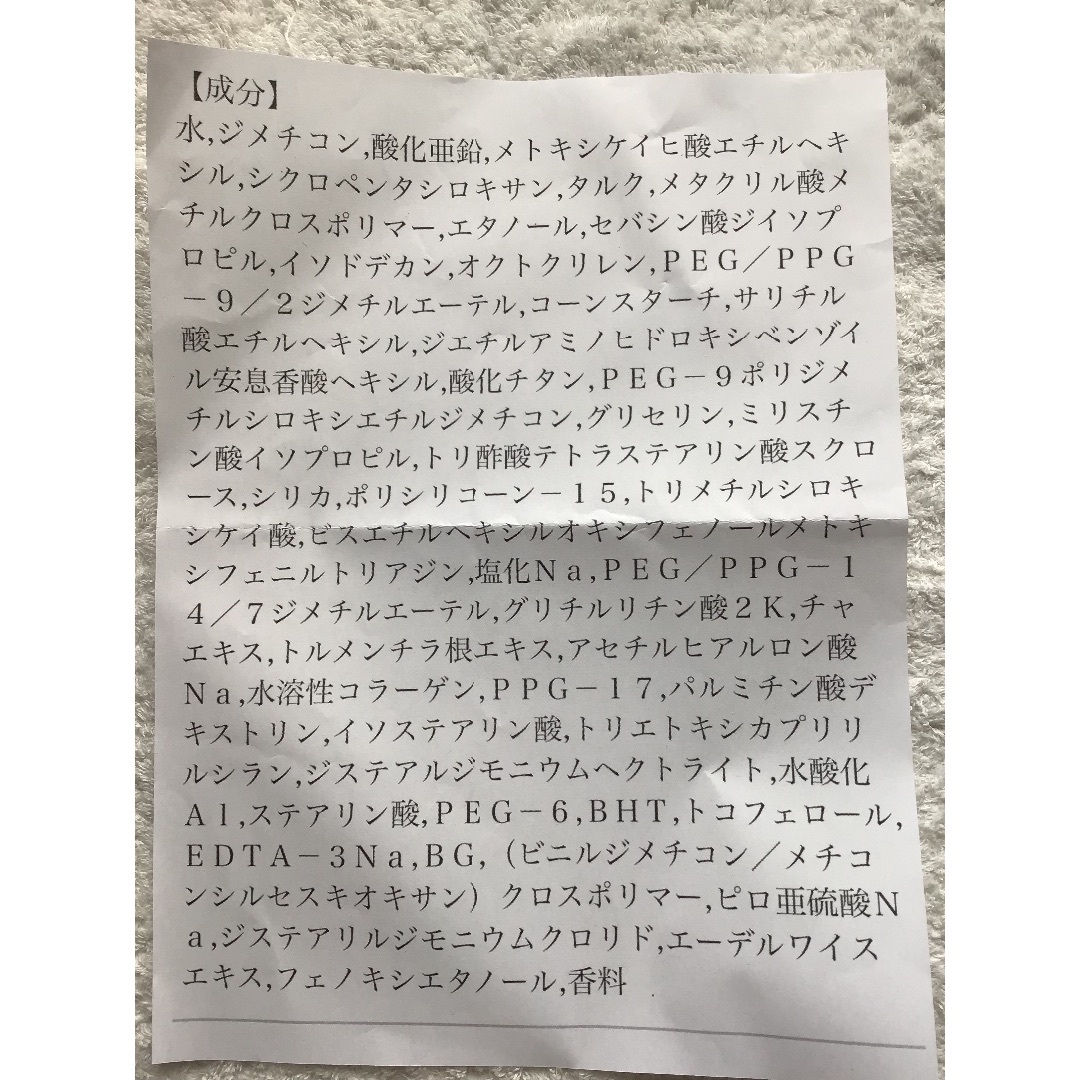 【成分】
水,ジメチコン,酸化亜鉛,メトキシケイヒ酸エチルヘキ
シル,シクロペンタシロキサン,タルク,メタクリル酸メ
チルクロスポリマー,エタノール,セバシン酸ジイソプ
ロピル,イソドデカン,オクトクリレン,ＰＥＧ／ＰＰＧ
－９／２ジメチルエーテル,コーンスターチ,サリチル
酸エチルヘキシル,ジエチルアミノヒドロキシベンゾイ
ル安息香酸ヘキシル,酸化チタン,ＰＥＧ－９ポリジメ
チルシロキシエチルジメチコン,グリセリン,ミリスチ
ン酸イソプロピル,トリ酢酸テトラステアリン酸スクロ
ース,シリカ,ポリシリコーン－１５,トリメチルシロキ
シケイ酸,ビスエチルヘキシルオキシフェノールメトキ
シフェニルトリアジン,塩化Ｎａ,ＰＥＧ／ＰＰＧ－１
４／７ジメチルエーテル,グリチルリチン酸２Ｋ,チャ
エキス,トルメンチラ根エキス,アセチルヒアルロン酸
Ｎａ,水溶性コラーゲン,ＰＰＧ－１７,パルミチン酸デ
キストリン,イソステアリン酸,トリエトキシカプリリ
ルシラン,ジステアルジモニウムヘクトライト,水酸化
Ａｌ,ステアリン酸,ＰＥＧ－６,ＢＨＴ,トコフェロール,
ＥＤＴＡ－３Ｎａ,ＢＧ,（ビニルジメチコン／メチコ
ンシルセスキオキサン）クロスポリマー,ピロ亜硫酸Ｎ
ａ,ジステアリルジモニウムクロリド,エーデルワイス
エキス,フェノキシエタノール,香料